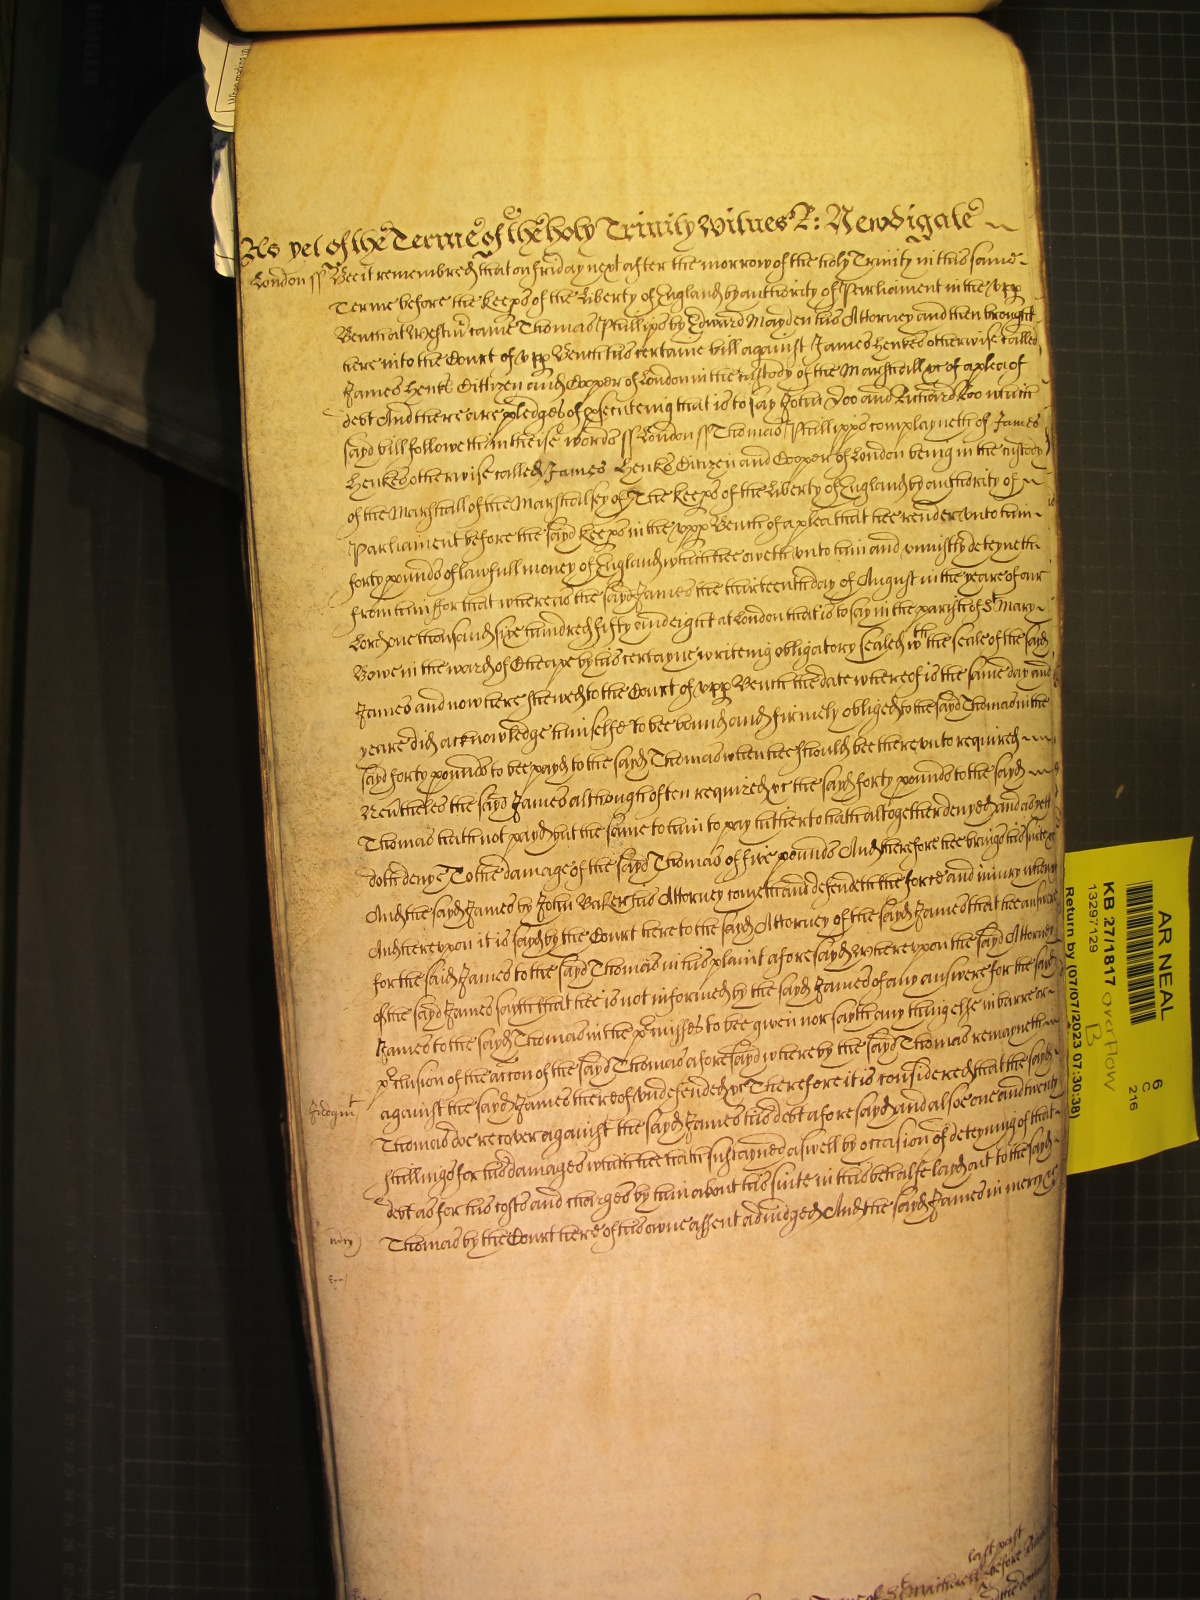 As yet of the Terme of the holy Trinity Witnes R: Newdigate
London ss Bee it remembred that on friday next after the morrow of the holy Trinity in this same
Terme before the keeps of the Liberty of England by authority of Parliament in the upp
Bench at Westm came Thomas Phillipps by Edward Mayden his Attorney and then brought
here into the Court of upp Bench his certaine bill against James Henkes otherwise called
James Henks Citizen and Cooper of London in the custody of the Marshall &c of a plea of
debt And there are pledges of prosecuteing that is to say John Doo and Richard Roo which
sayd bill followeth in theise words ss London ss Thomas Phillipps complayneth of James
Henkes otherwise called James Henks Citizen and Cooper of London being in the custody
of the Marshall of the Marshalsey of The keeps of the Liberty of England by authority of
Parliament before the sayd keeps in the upp Bench of a plea that hee render unto him
forty pounds of lawfull money of England which hee oweth unto him and uniustly deteyneth
from him ffor that whereas the sayd James the thirteenth day of August in the yeare of our
Lord one thousand sixe hundred fifty and eight at London that is to say in the parish of St Mary
Bowe in the ward of Cheape by his certayne writeing obligatory sealed wth the seale of the sayd
James and now here shewed to the Court of upp Bench the date whereof is the same day and
yeare did acknowledge himselfe to bee bound and firmely obliged to the sayd Thomas in the
sayd forty pounds to bee payd to the sayd Thomas when hee should bee thereunto required
Neutheles the sayd James although often required &c the sayd forty pounds to the sayd
Thomas hath not payd but the same to him to pay hitherto hath altogether denyed and as yett
doth denye To the damage of the sayd Thomas of five pounds And therefore hee brings his suite &c
And the sayd James by John Baker his Attorney cometh and defendeth the force and iniury when &c
And hereupon it is sayd by the Court here to the sayd Attorney of the sayd James that hee answere
for the said James to the sayd Thomas in his plaint aforesayd Whereupon the sayd Attorney
of the sayd James sayth that hee is not informed by the sayd James of any answere for the sayd
James to the sayd Thomas in the pmisses to bee given nor sayth any thing else in barre or
pclusion of the accon of the sayd Thomas aforesayd whereby the sayd Thomas remayneth
against the sayd James thereof undefended &c Therefore it is considered that the sayd
Thomas doe recover against the sayd James his debt aforesayd and alsoe one and twenty
shillings for his damages which hee hath sustayned aswell by occasion of deteyning of that
debt as for his costs and charges by him about his suite in this behalfe layd out to the sayd
Thomas by the Court here of his owne assent adiudged And the sayd James in mercy &c
last past
AR NEAL
KB 27/1817 overflow
B
13297129
Return by (07/07/2023 07:30:38)
6
C
216